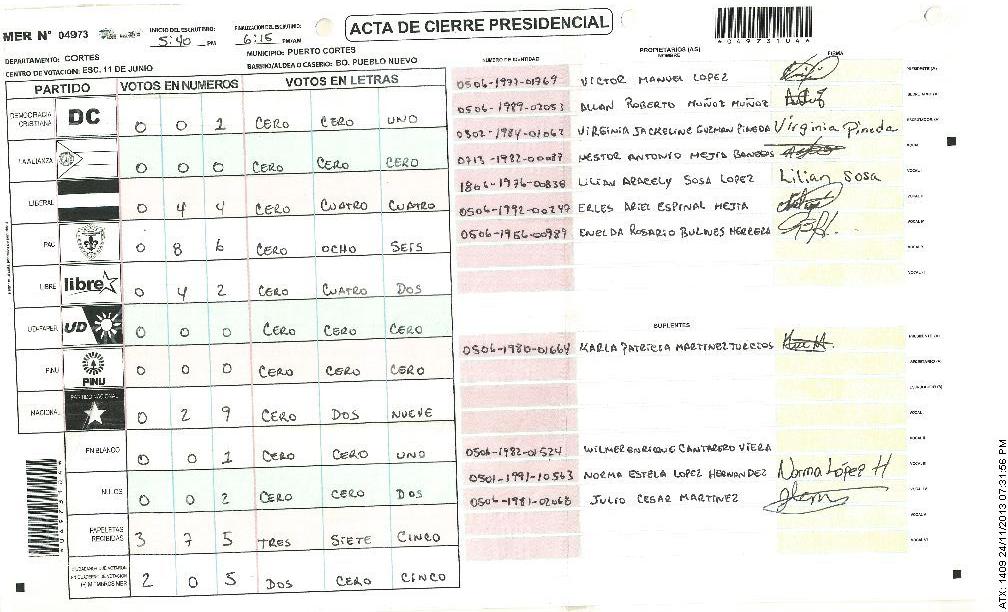 ACTA DE CIERRE PRESIDENCIAL
MER N° 04973
INICIO DEL ESCRUTINIO: 5:40 PM
FINALIZACION DEL ESCRUTINIO: 6:15 PM/AM
DEPARTAMENTO: CORTES
MUNICIPIO: PUERTO CORTES
CENTRO DE VOTACION: ESC. 11 DE JUNIO
BARRIO/ALDEA O CASERIO: BO. PUEBLO NUEVO
4049731044
PARTIDO VOTOS EN NUMEROS VOTOS EN LETRAS
DEMOCRACIA CRISTIANA DC 0 0 1 CERO CERO UNO
LA ALIANZA 0 0 0 CERO CERO CERO
LIBERAL 0 4 4 CERO CUATRO CUATRO
PAC 0 8 6 CERO OCHO SEIS
LIBRE libre 0 4 2 CERO CUATRO DOS
UD-FAPER UD 0 0 0 CERO CERO CERO
PINU PINU 0 0 0 CERO CERO CERO
NACIONAL PARTIDO NACIONAL 0 2 9 CERO DOS NUEVE
EN BLANCO 0 0 1 CERO CERO UNO
NULOS 0 0 2 CERO CERO DOS
PAPELETAS RECIBIDAS 3 7 5 TRES SIETE CINCO
2 0 5 DOS CERO CINCO
NUMERO DE IDENTIDAD PROPIETARIOS (AS) FIRMA
0506-1977-01769 VICTOR MANUEL LOPEZ PRESIDENTE (A)
0506-1989-02053 ALLAN ROBERTO MUÑOZ MUÑOZ SECRETARIO (A)
0302-1984-01062 VIRGINIA JACKELINE GUZMAN PINEDA Virginia Pineda ESCRUTADOR (A)
0713-1982-00087 NESTOR ANTONIO MEJIA VOCAL I
1806-1976-00838 LILIAN ARACELY SOSA LOPEZ Lilian Sosa
0506-1992-00247 ERLES ARIEL ESPINAL MEJIA
0506-1956-00989 ENELDA ROSARIO BULNES HERRERA
SUPLENTES
0506-1980-01664 KARLA PATRICIA MARTINEZ TURCIOS PRESIDENTE (A)
SECRETARIO (A)
ESCRUTADOR (A)
0506-1982-01524 WILMER ENRIQUE CANTARERO VIERA
0501-1991-10563 NORMA ESTELA LOPEZ HERNANDEZ Norma López H
0506-1981-02068 JULIO CESAR MARTINEZ
ATX: 1409 24/11/2013 07:31:56 PM